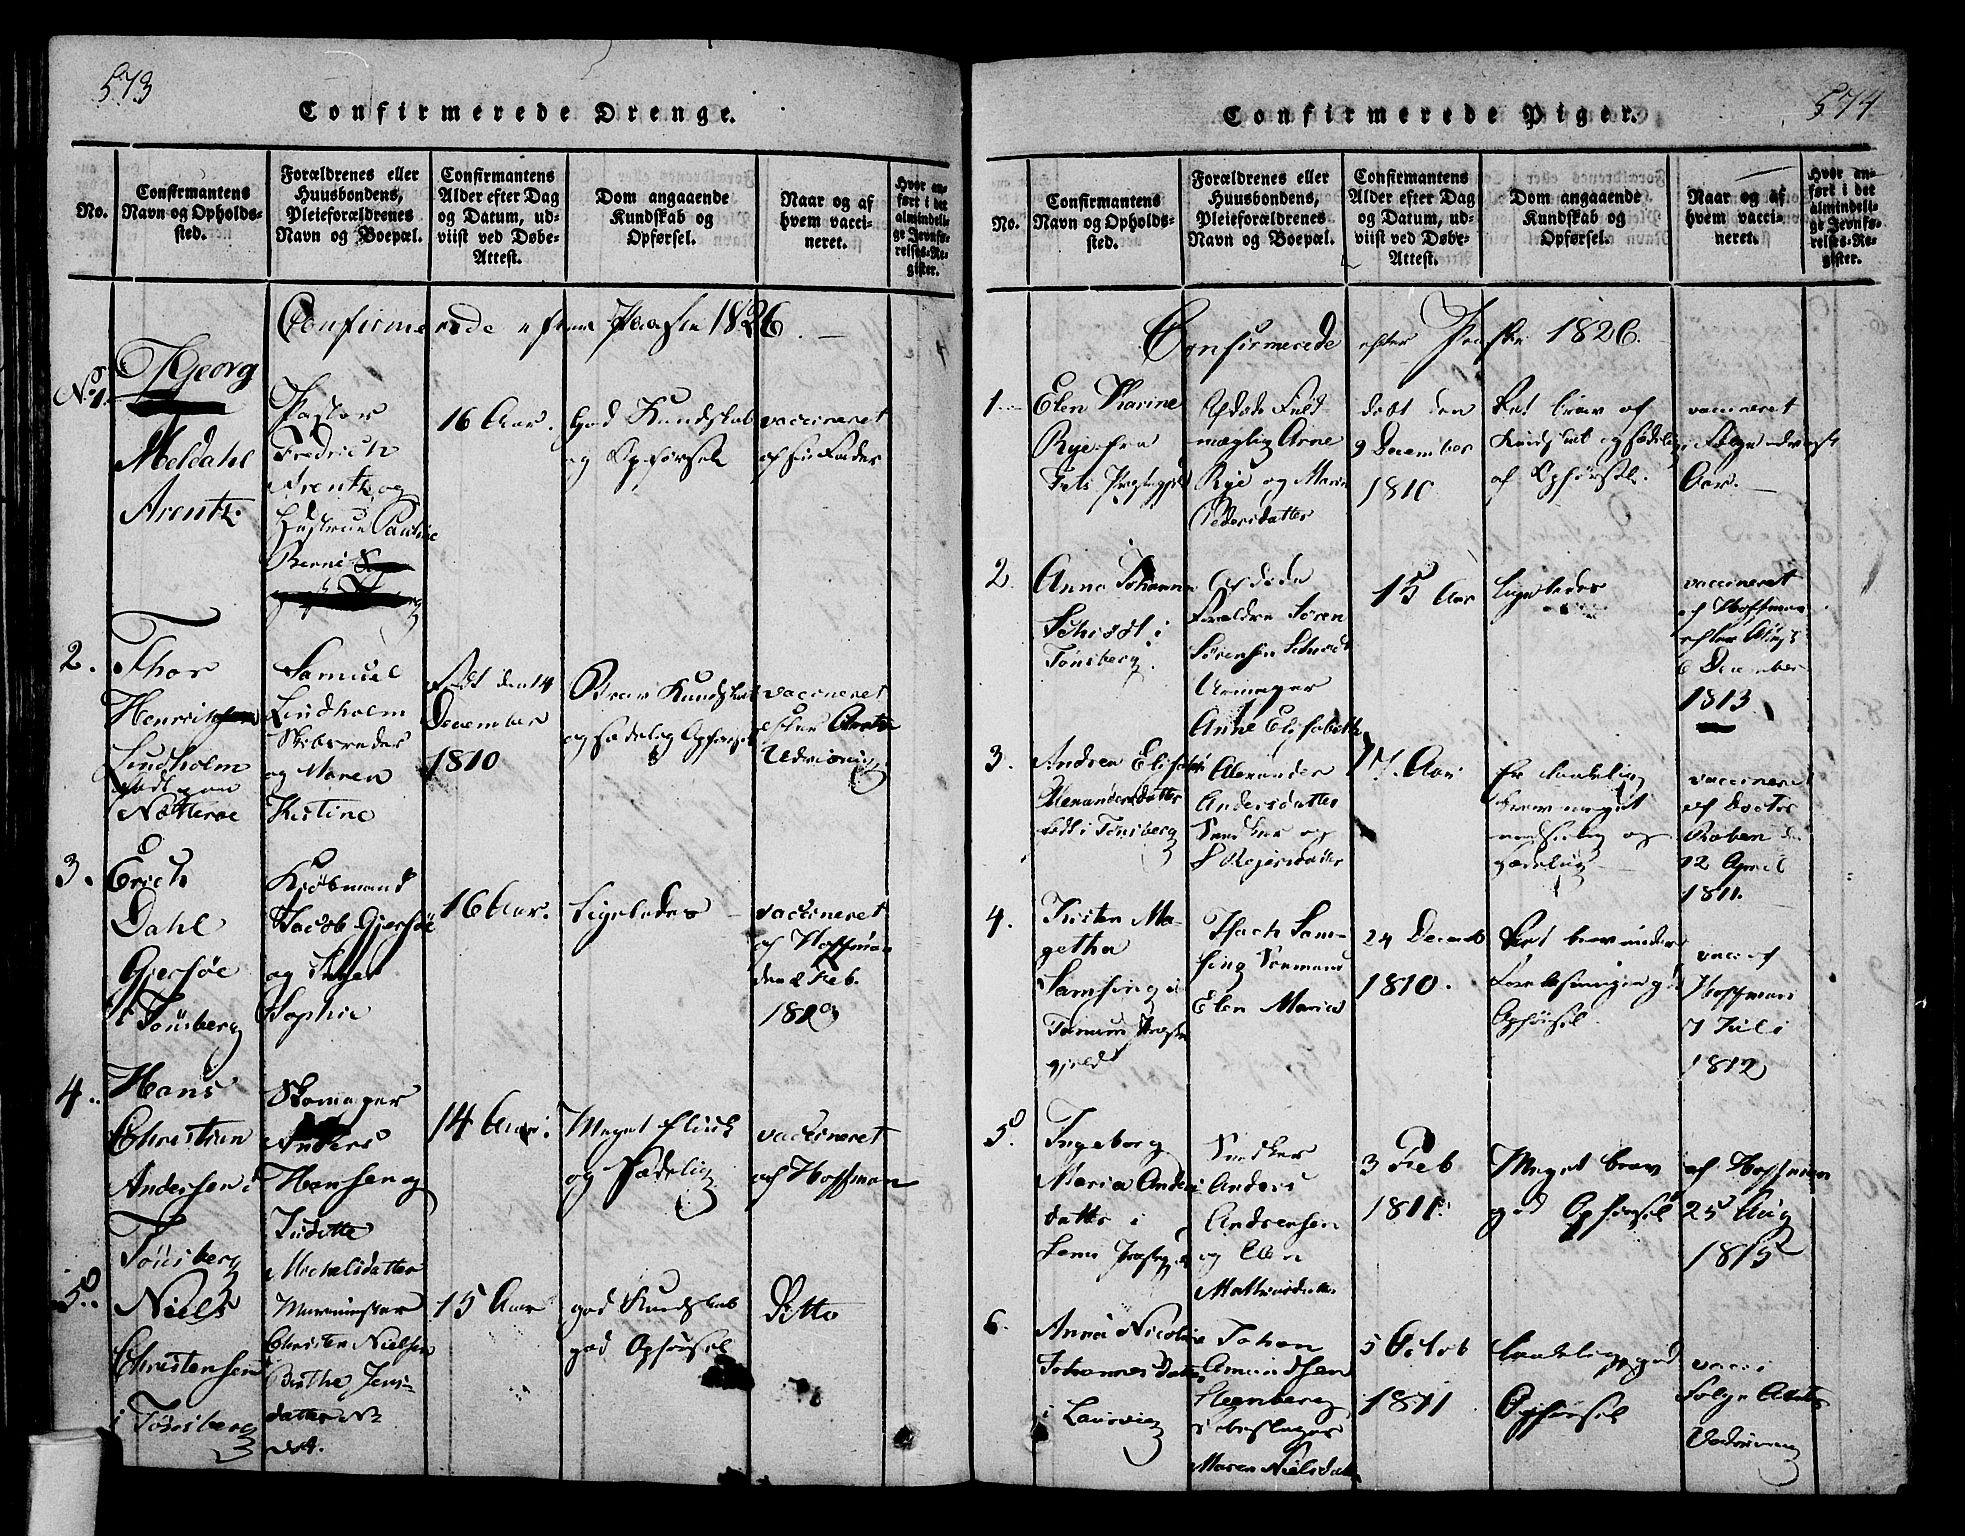 573
Confirmerede Drenge.
No.
Confirmantens
Navn og Opholds-
sted.
Forældrenes eller
Huusbondens,
Pleieforældrenes
Navn og Boepæl.
Confirmantens
Alder efter Dag
og Datum, ud-
viist ved Døbe-
Attest.
Dom angaaende
Kundskab og
Opførsel.
Naar og af
hvem vacci-
neret.
Hvor an-
ført i det
almindeli-
ge Jevnfø-
relses-Re-
gister.
Confirmerede efter Paaske 1826.
No 1.
Georg
Meldahl
Arentz
Pastor
Fredrich
Arentz og
Hustrue Pauline
16 Aar.
God Kundskab
og Opførsel
vaccineret
af sin Fader
2.
Thor
Henrich
Lindholm
Nøtterøe
Samuel
Lindholm
Skibsreder
og Maren
Kistine
født den 14
December
1810
Brav Kundskab
og sædelig Opførsel
vaccineret
efter Attest
Udviisning
3.
Erich
Dahl
Gjersøe
i Tønsberg
Kjøbmand
Jacob Gjersøe
og Inger
Sophie
16 Aar.
Ligeledes
vaccineret
af Hoffman
den 2 Feb.
4.
Hans
Christian
Andersen i
Tønsberg
Skomager
Anders
Hansen og
Juditte
Michelsdatter
14 Aar.
Meget flink
og Sædelig
vaccineret
af Hoffman
5.
Niels
Christensen
i Tønsberg
Muurmester
Christen Nielsen
Birthe Jens-
datter
15 Aar
god Kundskab
god Opførsel
Ditto
574
Confirmerede Piger.
No.
Confirmantens
Navn og Opholds-
sted.
Forældrenes eller
Huusbondens,
Pleieforældrenes
Navn og Boepæl.
Confirmantens
Alder efter Dag
og Datum, ud-
viist ved Døbe-
Attest.
Dom angaaende
Kundskab og
Opførsel.
Naar og af
hvem vacci-
neret.
Hvor an-
ført i det
almindeli-
ge Jevnfø-
relses-Re-
gister.
Confirmerede efter Paaske 1826.
1
Elen Karine
Rye fra
mægtig Arne
Rye og Maren
Pedersdatter
født den
9 December
1810
Ret brav af
Kundskab og sædelig
af Opførsel.
vaccineret
Aar.
2.
Anna Johanne
Schmidt i
Tønsberg.
Afdøde
Forældre Søren
Sørensen Schmidt
Anne Elisabeth
15 Aar
Ligeledes
vaccineret
af Hoffman
efter Attest
6 December
1813
3.
Andrea Elisabeth
Alexandersdatter
født i Tønsberg
Alexander
Andersdatter
Snedker og
17 Aar
brav meget
og
sædelig
vaccineret
af Doctor
Raben den
12 April
1811.
4.
Kirsten Ma-
getha
Samsing i
gjeld
Isach Sam-
sing
Elen Maria
24 Decemb
1810.
Opførsel.
vacc af
Hoffman
7 Juli
1812
5.
Ingeborg
Maria Anders
datter i
Sems Præstegjeld
Snedker
Anders
Andersen
og Elen
3 Feb
1811.
Meget brav
god Opførsel
af Hoffman
25 Aug
1815
6.
Anna Nicoline
Johannesdatter
i Laurvig
Johan
Amundsen
Steenberg
Maren Nielsdatter
5 Octob
1811
Opførsel
vacc i
Følge Attest